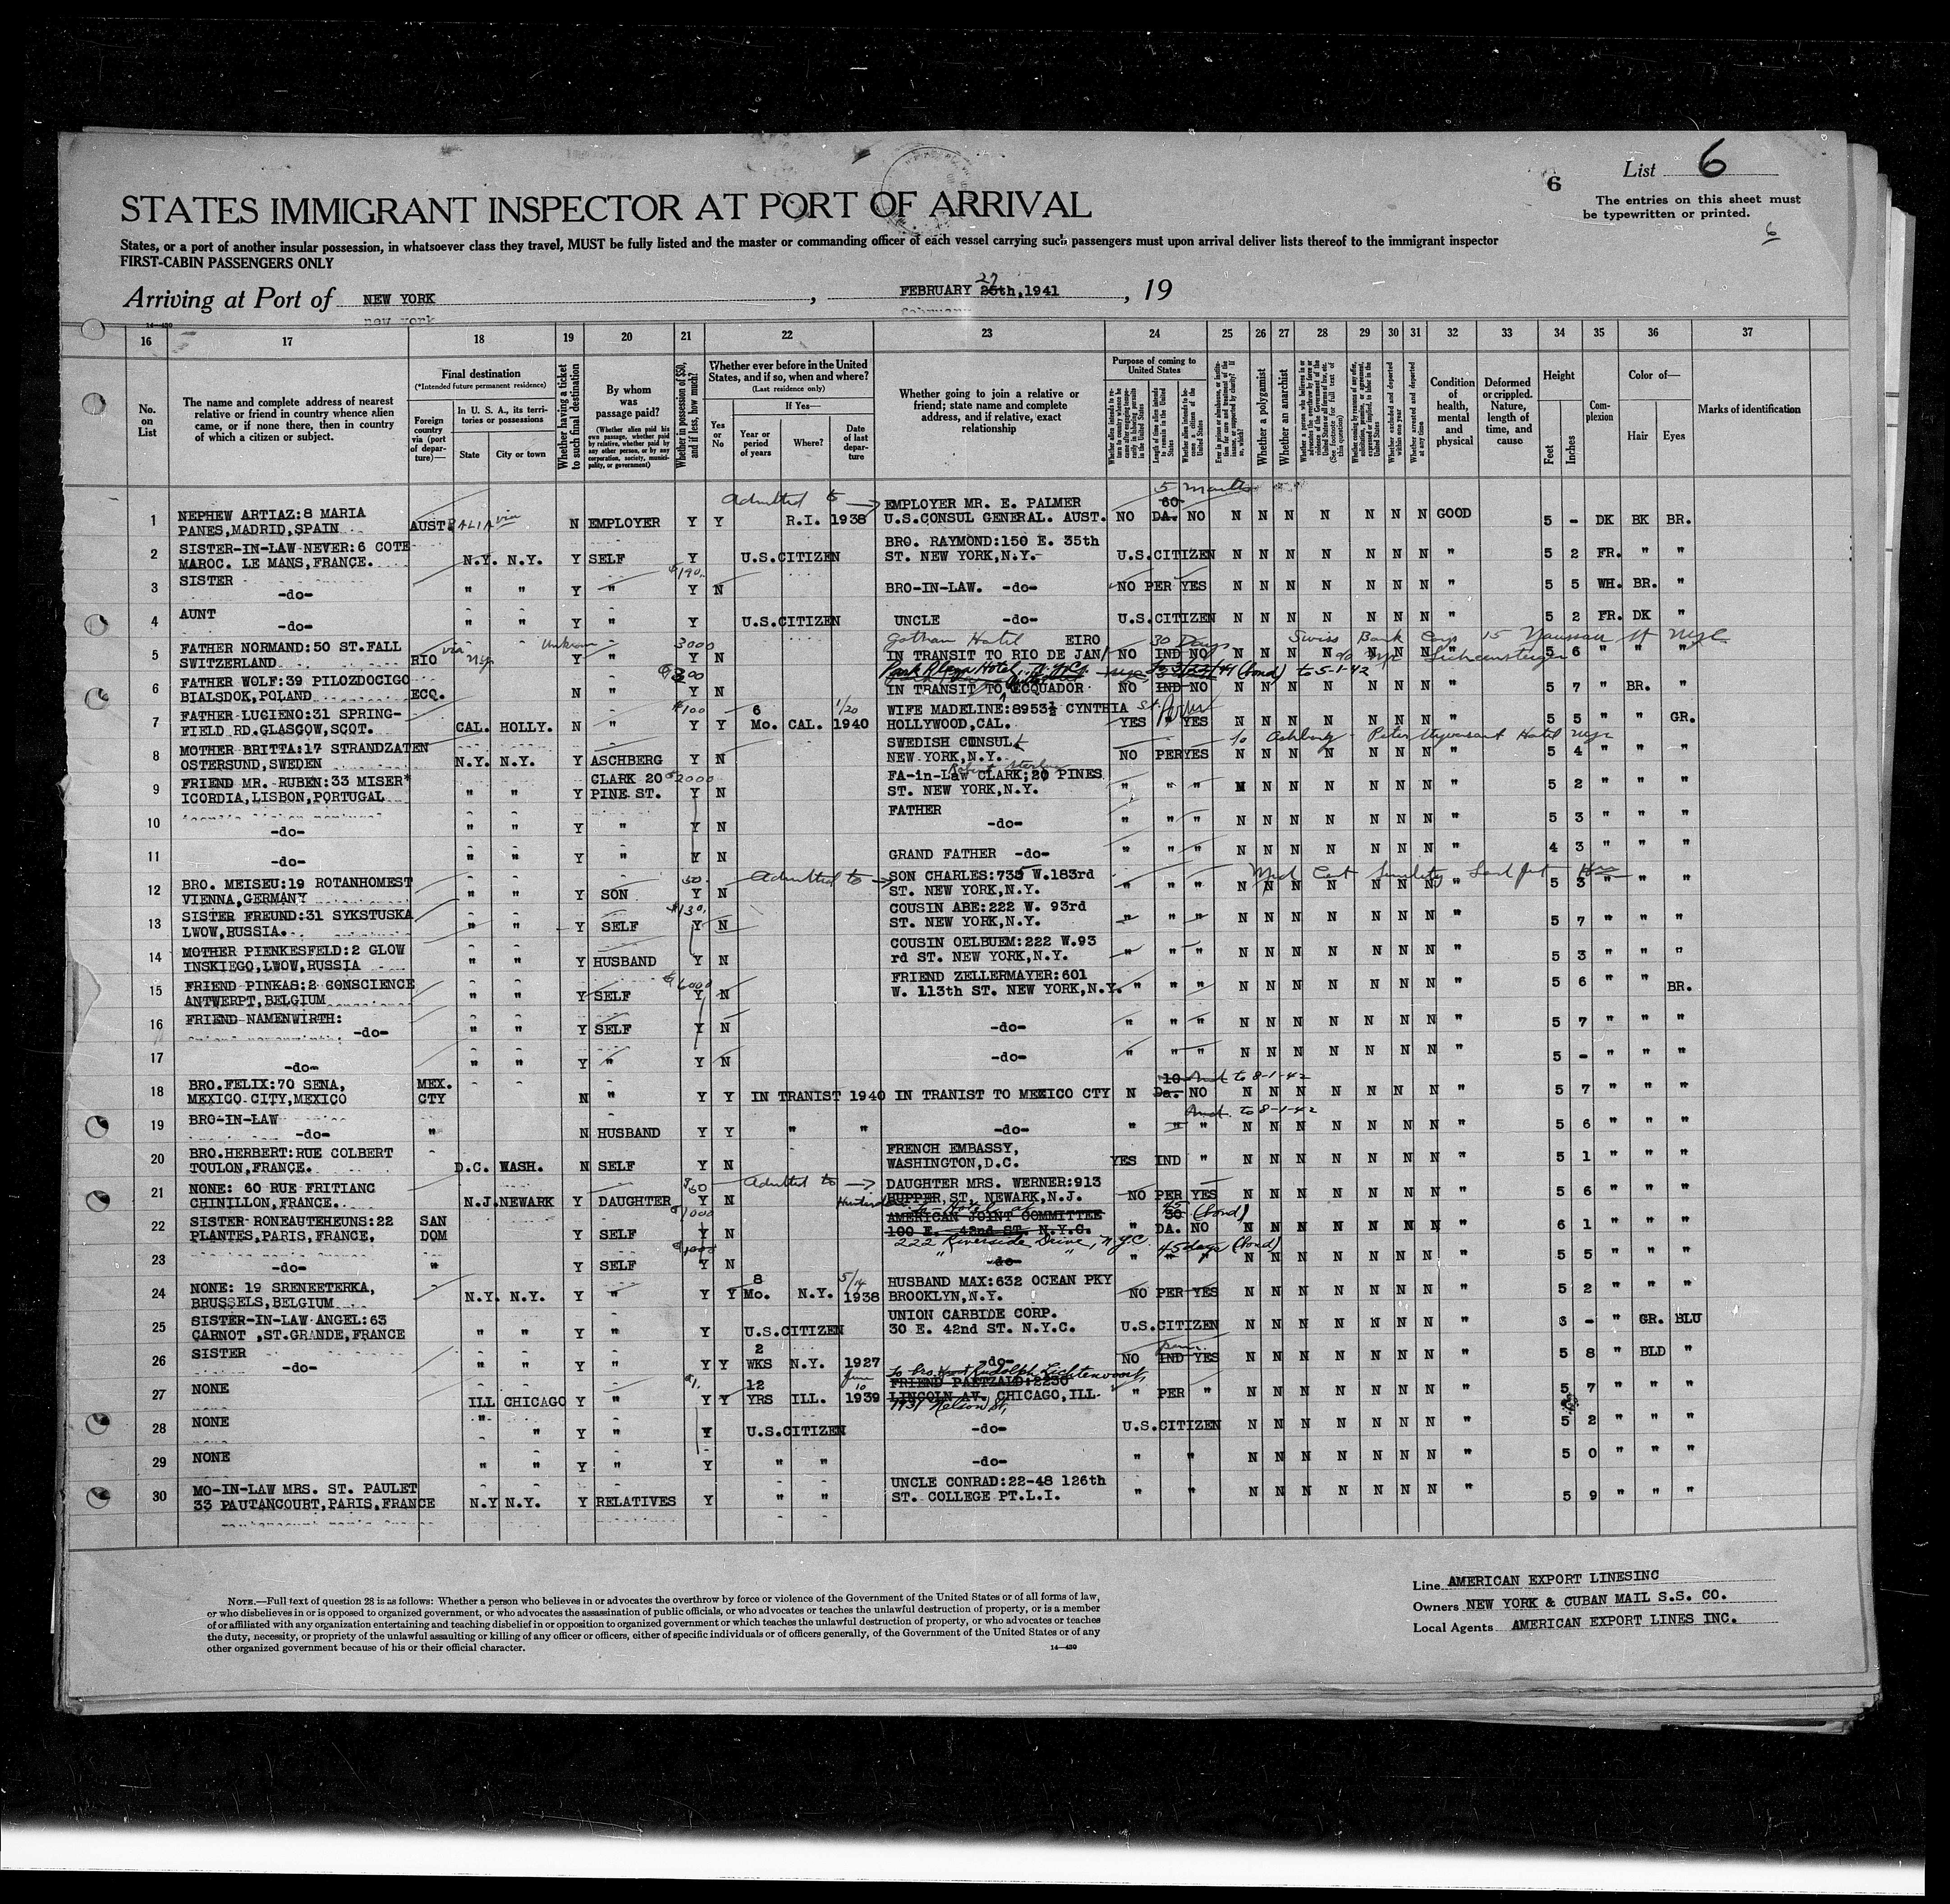 List 6
6
The entries on this sheet must
be typewritten or printed.
6
STATES IMMIGRANT INSPECTOR AT PORT OF ARRIVAL
States, or a port of another insular possession, in whatsoever class they travel, MUST be fully listed and the master or commanding officer of each vessel carrying such passengers must upon arrival deliver lists thereof to the immigrant inspector
FIRST-CABIN PASSENGERS ONLY
Arriving at Port of NEW YORK , FEBRUARY 26th,1941 27 , 19
new york
14-430
16 17 18 19 20 21 22 23 24 25 26 27 28 29 30 31 32 33 34 35 36 37
No. on List
The name and complete address of nearest relative or friend in country whence alien came, or if none there, then in country of which a citizen or subject.
Final destination
(*Intended future permanent residence)
Foreign country via (port of departure)—
In U. S. A., its territories or possessions
State
City or town
Whether having a ticket to such final destination
By whom was passage paid?
(Whether alien paid his own passage, whether paid by relative, whether paid by any other person, or by any corporation, society, municipality, or government)
Whether in possession of $50, and if less, how much?
Whether ever before in the United States, and if so, when and where?
(Last residence only)
Yes or No
If Yes—
Year or period of years
Where?
Date of last departure
Whether going to join a relative or friend; state name and complete address, and if relative, exact relationship
Purpose of coming to United States
Length of time alien intends to remain in the United States
Whether a polygamist
Whether an anarchist
Whether arrested and deported at any time
Condition of health, mental and physical
Deformed or crippled. Nature, length of time, and cause
Height
Feet
Inches
Complexion
Color of—
Hair
Eyes
Marks of identification
Admitted to 5 months
1 NEPHEW ARTIAZ:8 MARIA EMPLOYER MR. E. PALMER 60
PANES,MADRID,SPAIN AUSTRALIA via N EMPLOYER Y Y R.I. 1938 U.S.CONSUL GENERAL. AUST. NO DA. NO N N N N N N N GOOD 5 - DK BK BR.
2 SISTER-IN-LAW NEVER:6 COTE BRO. RAYMOND:150 E. 35th
MAROC. LE MANS,FRANCE. N.Y. N.Y. Y SELF Y U.S.CITIZEN ST. NEW YORK,N.Y. U.S.CITIZEN N N N N N N N " 5 2 FR. " "
$190.
3 SISTER
-do- " " Y " Y N BRO-IN-LAW. -do- NO PER YES N N N N N N N " 5 5 WH. BR. "
4 AUNT
-do- " " Y " Y U.S.CITIZEN UNCLE -do- U.S.CITIZEN N N N N N N N " 5 2 FR. DK "
5 FATHER NORMAND:50 ST.FALL via 3000 Gotham Hotel EIRO 30 Days Swiss Bank Corp 15 Nassau St NYC
SWITZERLAND RIO NYC Y " Y N IN TRANSIT TO RIO DE JAN/ NO IND NO N N N N N N N " 5 6 " " "
6 FATHER WOLF:39 PILOZDOCIGO Park Plaza Hotel, N.Y.C. (bond) to 5-1-42
BIALSDOK,POLAND ECQ. N " Y N IN TRANSIT TO ECQUADOR NO IND NO N N N N N N N " 5 7 " BR. "
7 FATHER LUGIENO:31 SPRING- $100 6 1/20 WIFE MADELINE:8953½ CYNTHIA St.
FIELD RD.GLASGOW,SCOT. CAL. HOLLY. N " Y Y Mo. CAL. 1940 HOLLYWOOD,CAL. YES " YES N N N N N N N " 5 5 " " GR.
8 MOTHER BRITTA:17 STRANDZATEN SWEDISH CONSUL to Ashberg - Peter Stuyvesant Hotel NYC
OSTERSUND,SWEDEN N.Y. N.Y. Y ASCHBERG Y N NEW YORK,N.Y. NO PER YES N N N N N N N " 5 4 " " "
9 FRIEND MR. RUBEN:33 MISER* CLARK 20 $2000 Robert Sterling FA-in-Law CLARK;20 PINES
ICORDIA,LISBON,PORTUGAL " " Y PINE ST. Y N ST. NEW YORK,N.Y. " " " N N N N N N N " 5 2 " " "
10 FATHER
-do- " " Y " Y N -do- " " " N N N N N N N " 5 3 " " "
11 -do- " " Y " Y N GRAND FATHER -do- " " " N N N N N N N " 4 3 " " "
12 BRO. MEISEU:19 ROTANHOMEST 50. Admitted to SON CHARLES:735 W.183rd
VIENNA,GERMANY " " Y SON Y N ST. NEW YORK,N.Y. " " " N N N N N N N " 5 3 " " "
13 SISTER FREUND:31 SYKSTUSKA $130. COUSIN ABE:222 W. 93rd
LWOW,RUSSIA. " " Y SELF Y N ST. NEW YORK,N.Y. " " " N N N N N N N " 5 7 " " "
14 MOTHER PIENKESFELD:2 GLOW COUSIN OELBUEM:222 W.93
INSKIEGO,LWOW,RUSSIA " " Y HUSBAND Y N rd ST. NEW YORK,N.Y. " " " N N N N N N N " 5 3 " " "
15 FRIEND PINKAS:2 CONSCIENCE $6000 FRIEND ZELLERMAYER:601
ANTWERPT,BELGIUM " " Y SELF Y N W. 113th ST. NEW YORK,N.Y. " " " N N N N N N N " 5 6 " " BR.
16 FRIEND NAMENWIRTH:
-do- " " Y SELF Y N -do- " " " N N N N N N N " 5 7 " " "
17 -do- " " Y " Y N -do- " " " N N N N N N N " 5 - " " "
18 BRO.FELIX:70 SENA, MEX. 10 Amd. to 8-1-42
MEXICO CITY,MEXICO CTY N " Y Y IN TRANIST 1940 IN TRANIST TO MEXICO CTY N Da. NO N N N N N N N " 5 7 " " "
19 BRO-IN-LAW Amd. to 8-1-42
-do- " N HUSBAND Y Y " " -do- " " " N N N N N N N " 5 6 " " "
20 BRO.HERBERT:RUE COLBERT FRENCH EMBASSY,
TOULON,FRANCE. D.C. WASH. N SELF Y N WASHINGTON,D.C. YES IND " N N N N N N N " 5 1 " " "
21 NONE: 60 RUE FRITIANC $60 Admitted to DAUGHTER MRS. WERNER:913
CHINILLON,FRANCE. N.J. NEWARK Y DAUGHTER Y N HUPPER ST. NEWARK,N.J. NO PER YES N N N N N N N " 5 6 " " "
22 SISTER RONEAUTEHEUNS:22 SAN $1000 AMERICAN JOINT COMMITTEE 30 45 (bond)
PLANTES,PARIS,FRANCE, DOM Y SELF Y N 100 E. 42nd ST. N.Y.C. " DA. NO N N N N N N N " 6 1 " " "
222 Riverside Drive, N.Y.C.
23 $1000 45 days (bond)
-do- " Y SELF Y N -do- " " " N N N N N N N " 5 5 " " "
24 NONE: 19 SRENEETERKA, 8 5/14 HUSBAND MAX:632 OCEAN PKY
BRUSSELS,BELGIUM N.Y. N.Y. Y " Y Y Mo. N.Y. 1938 BROOKLYN,N.Y. NO PER YES N N N N N N N " 5 2 " " "
25 SISTER-IN-LAW ANGEL:63 UNION CARBIDE CORP.
CARNOT ,ST.GRANDE,FRANCE " " Y " Y U.S.CITIZEN 30 E. 42nd ST. N.Y.C. U.S.CITIZEN N N N N N N N " 6 - " GR. BLU
26 SISTER 2 perm.
-do- " " Y " Y Y WKS N.Y. 1927 -do- NO IND YES N N N N N N N " 5 8 " BLD "
27 NONE $1. 12 June 10 FRIEND PAETZALD:2230
ILL CHICAGO Y " Y Y YRS ILL. 1939 LINCOLN AV. CHICAGO,ILL. " PER " N N N N N N N " 5 7 " " "
1931 Nelson St,
28 NONE " " Y " Y U.S.CITIZEN -do- U.S.CITIZEN N N N N N N N " 5 2 " " "
29 NONE " " Y " Y " " -do- " " N N N N N N N " 5 0 " " "
30 MO-IN-LAW MRS. ST. PAULET UNCLE CONRAD:22-48 126th
33 PAUTANCOURT,PARIS,FRANCE N.Y N.Y. Y RELATIVES Y " " ST. COLLEGE PT.L.I. " " N N N N N N N " 5 9 " " "
NOTE.—Full text of question 28 is as follows: Whether a person who believes in or advocates the overthrow by force or violence of the Government of the United States or of all forms of law,
or who disbelieves in or is opposed to organized government, or who advocates the assassination of public officials, or who advocates or teaches the unlawful destruction of property, or is a member
of or affiliated with any organization entertaining and teaching disbelief in or opposition to organized government or which teaches the unlawful destruction of property, or who advocates or teaches
the duty, necessity, or propriety of the unlawful assaulting or killing of any officer or officers, either of specific individuals or of officers generally, of the Government of the United States or of any
other organized government because of his or their official character. 14-430
Line AMERICAN EXPORT LINESINC
Owners NEW YORK & CUBAN MAIL S.S. CO.
Local Agents AMERICAN EXPORT LINES INC.